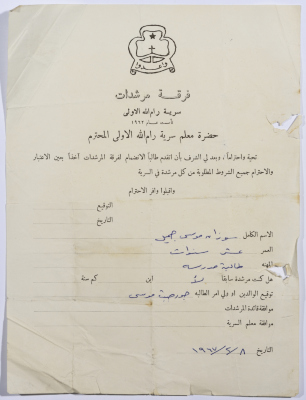 وأعدوا
فرقة مرشدات
سرية رام الله الاولى
تأسست عام ١٩٢٢
حضرة معلم سرية رام الله الاولى المحترم
تحية واحتراماً ، وبعد لي الشرف بأن اتقدم طالباً الانضمام لفرقة المرشدات آخذاً بعين الاعتبار
والاحترام جميع الشروط المطلوبة من كل مرشدة في السرية
واقبلوا وافر الاحترام
التوقيع
التاريخ
الاسم الكامل سوزان موسى
العمر عشر سنوات
المهنة طالبة مدرسة
هل كنت مرشدة سابقا لا اين كم سنة
توقيع الوالدين او ولي امر الطالبة جورجيت موسى
موافقة قائدة المرشدات
موافقة معلم السرية
التاريخ ١٩٦٧/٢/٨